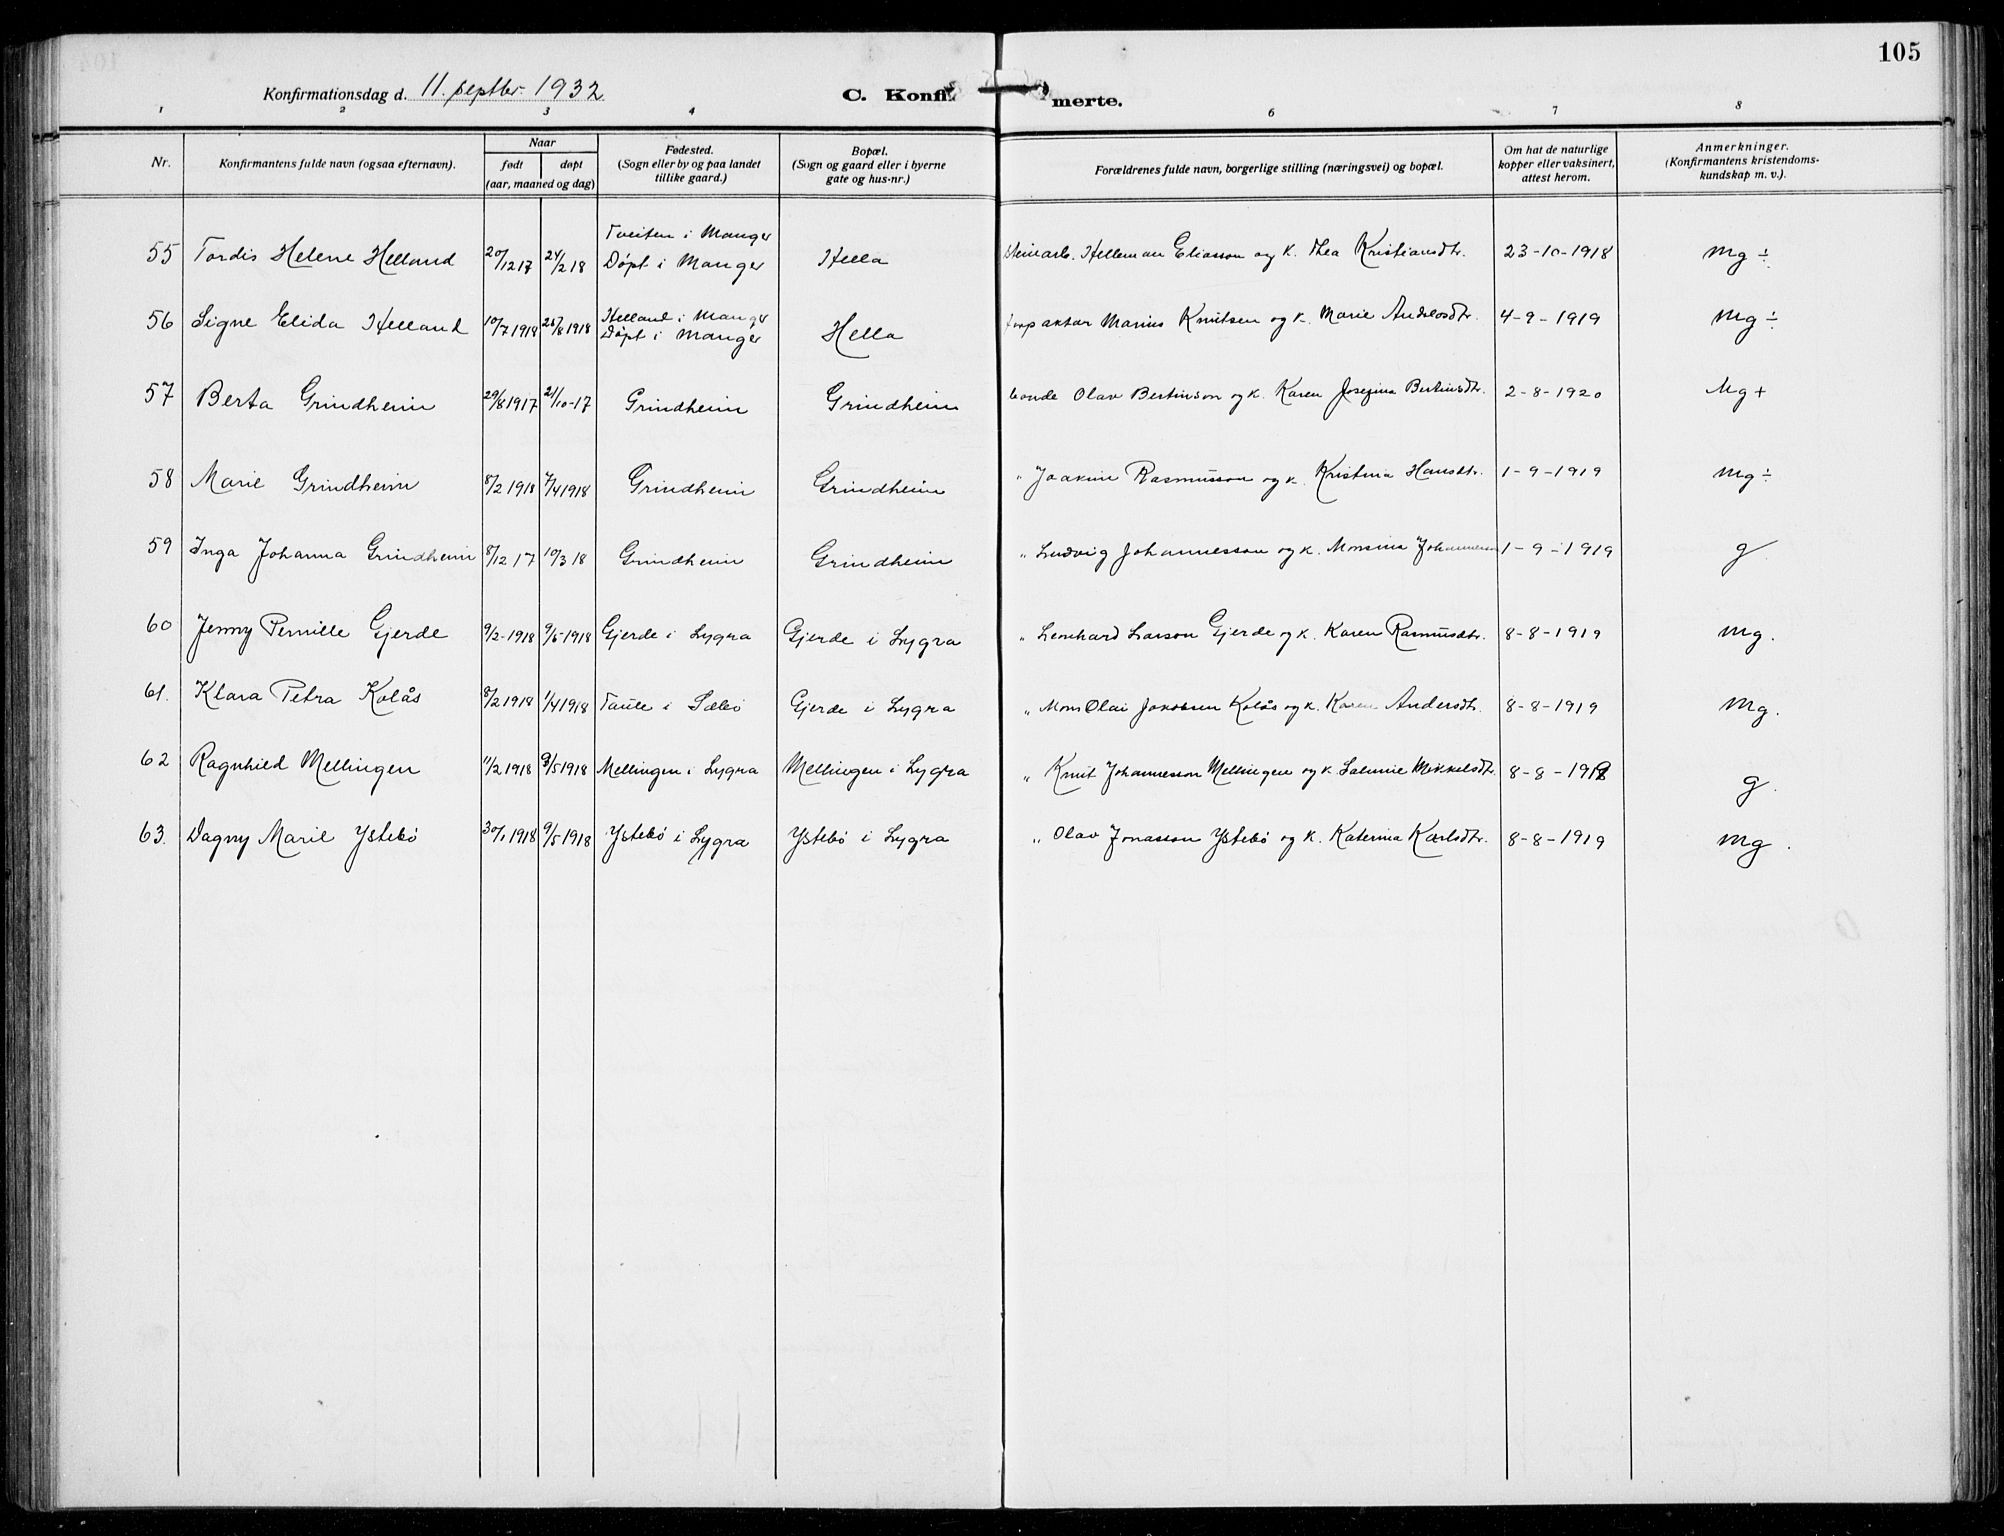 105
Konfirmationsdag d. 11. septbr. 1932
C. Konfirmerte.
1 2 3 4 6 7 8
Nr.
Konfirmantens fulde navn (ogsaa efternavn).
Naar
født døpt
(aar, maaned og dag)
Fødested.
(Sogn eller by og paa landet
tillike gaard.)
Bopæl.
(Sogn og gaard eller i byerne
gate og hus-nr.)
Forældrenes fulde navn, borgerlige stilling (næringsvei) og bopæl.
Om hat de naturlige
kopper eller vaksinert,
attest herom.
Anmerkninger.
(Konfirmantens kristendoms-
kundskap m. v.).
Tveiten i Manger
55 Tordis Helene Helland 20/12 17 24/2 18 Døpt i Manger Hella Steinarb. Helleman Eliasson og k. Thea Kristiansdtr. 23-10-1918 Mg ÷
Helland i Manger
56 Signe Elida Helland 10/7 1918 /8 1918 Døpt i Manger Hella Marius Knutsen og k. Marie 4-9-1919 Mg ÷
57 Berta Grindheim 29/8 1917 21/10-17 Grindheim Grindheim bonde Olav Bertinson og k. Karen Josefina Bertinsdtr. 2-8-1920 Mg +
58 Marie Grindheim 8/2 1918 7/4 1918 Grindheim Grindheim " Joakim Rasmusson og k. Kristina Hansdtr. 1-9-1919 Mg ÷
59 Inga Johanna Grindheim 8/12 17 10/3 18 Grindheim Grindheim " Ludvig Johannesson og k. Monsine 1-9-1919 g
60 Jenny Pernille Gjerde 9/2-1918 9/5-1918 Gjerde i Lygra Gjerde i Lygra " Leonhard Larson Gjerde og k. Karen Rasmusdtr. 8-8-1919 Mg.
61. Klara Petra Kolås 8/2 1918 1/4 1918 Taule i Sæbø Gjerde i Lygra " Mons Olai Jakobsen Kolås og k. Karen Andersdtr. 8-8-1919 Mg.
62 Ragnhild Mellingen 11/2 1918 9/5 1918 Mellingen i Lygra Mellingen i Lygra " Knut Johannesson Mellingen og k. Salmine Mikkelsdtr. 8-8-1919 g.
63. Dagny Marie Ystebø 30/1 1918 9/5 1918 Ystebø i Lygra Ystebø i Lygra " Olav Jonasson Ystebø og k. Katerina Karlsdtr. 8-8-1919 Mg.